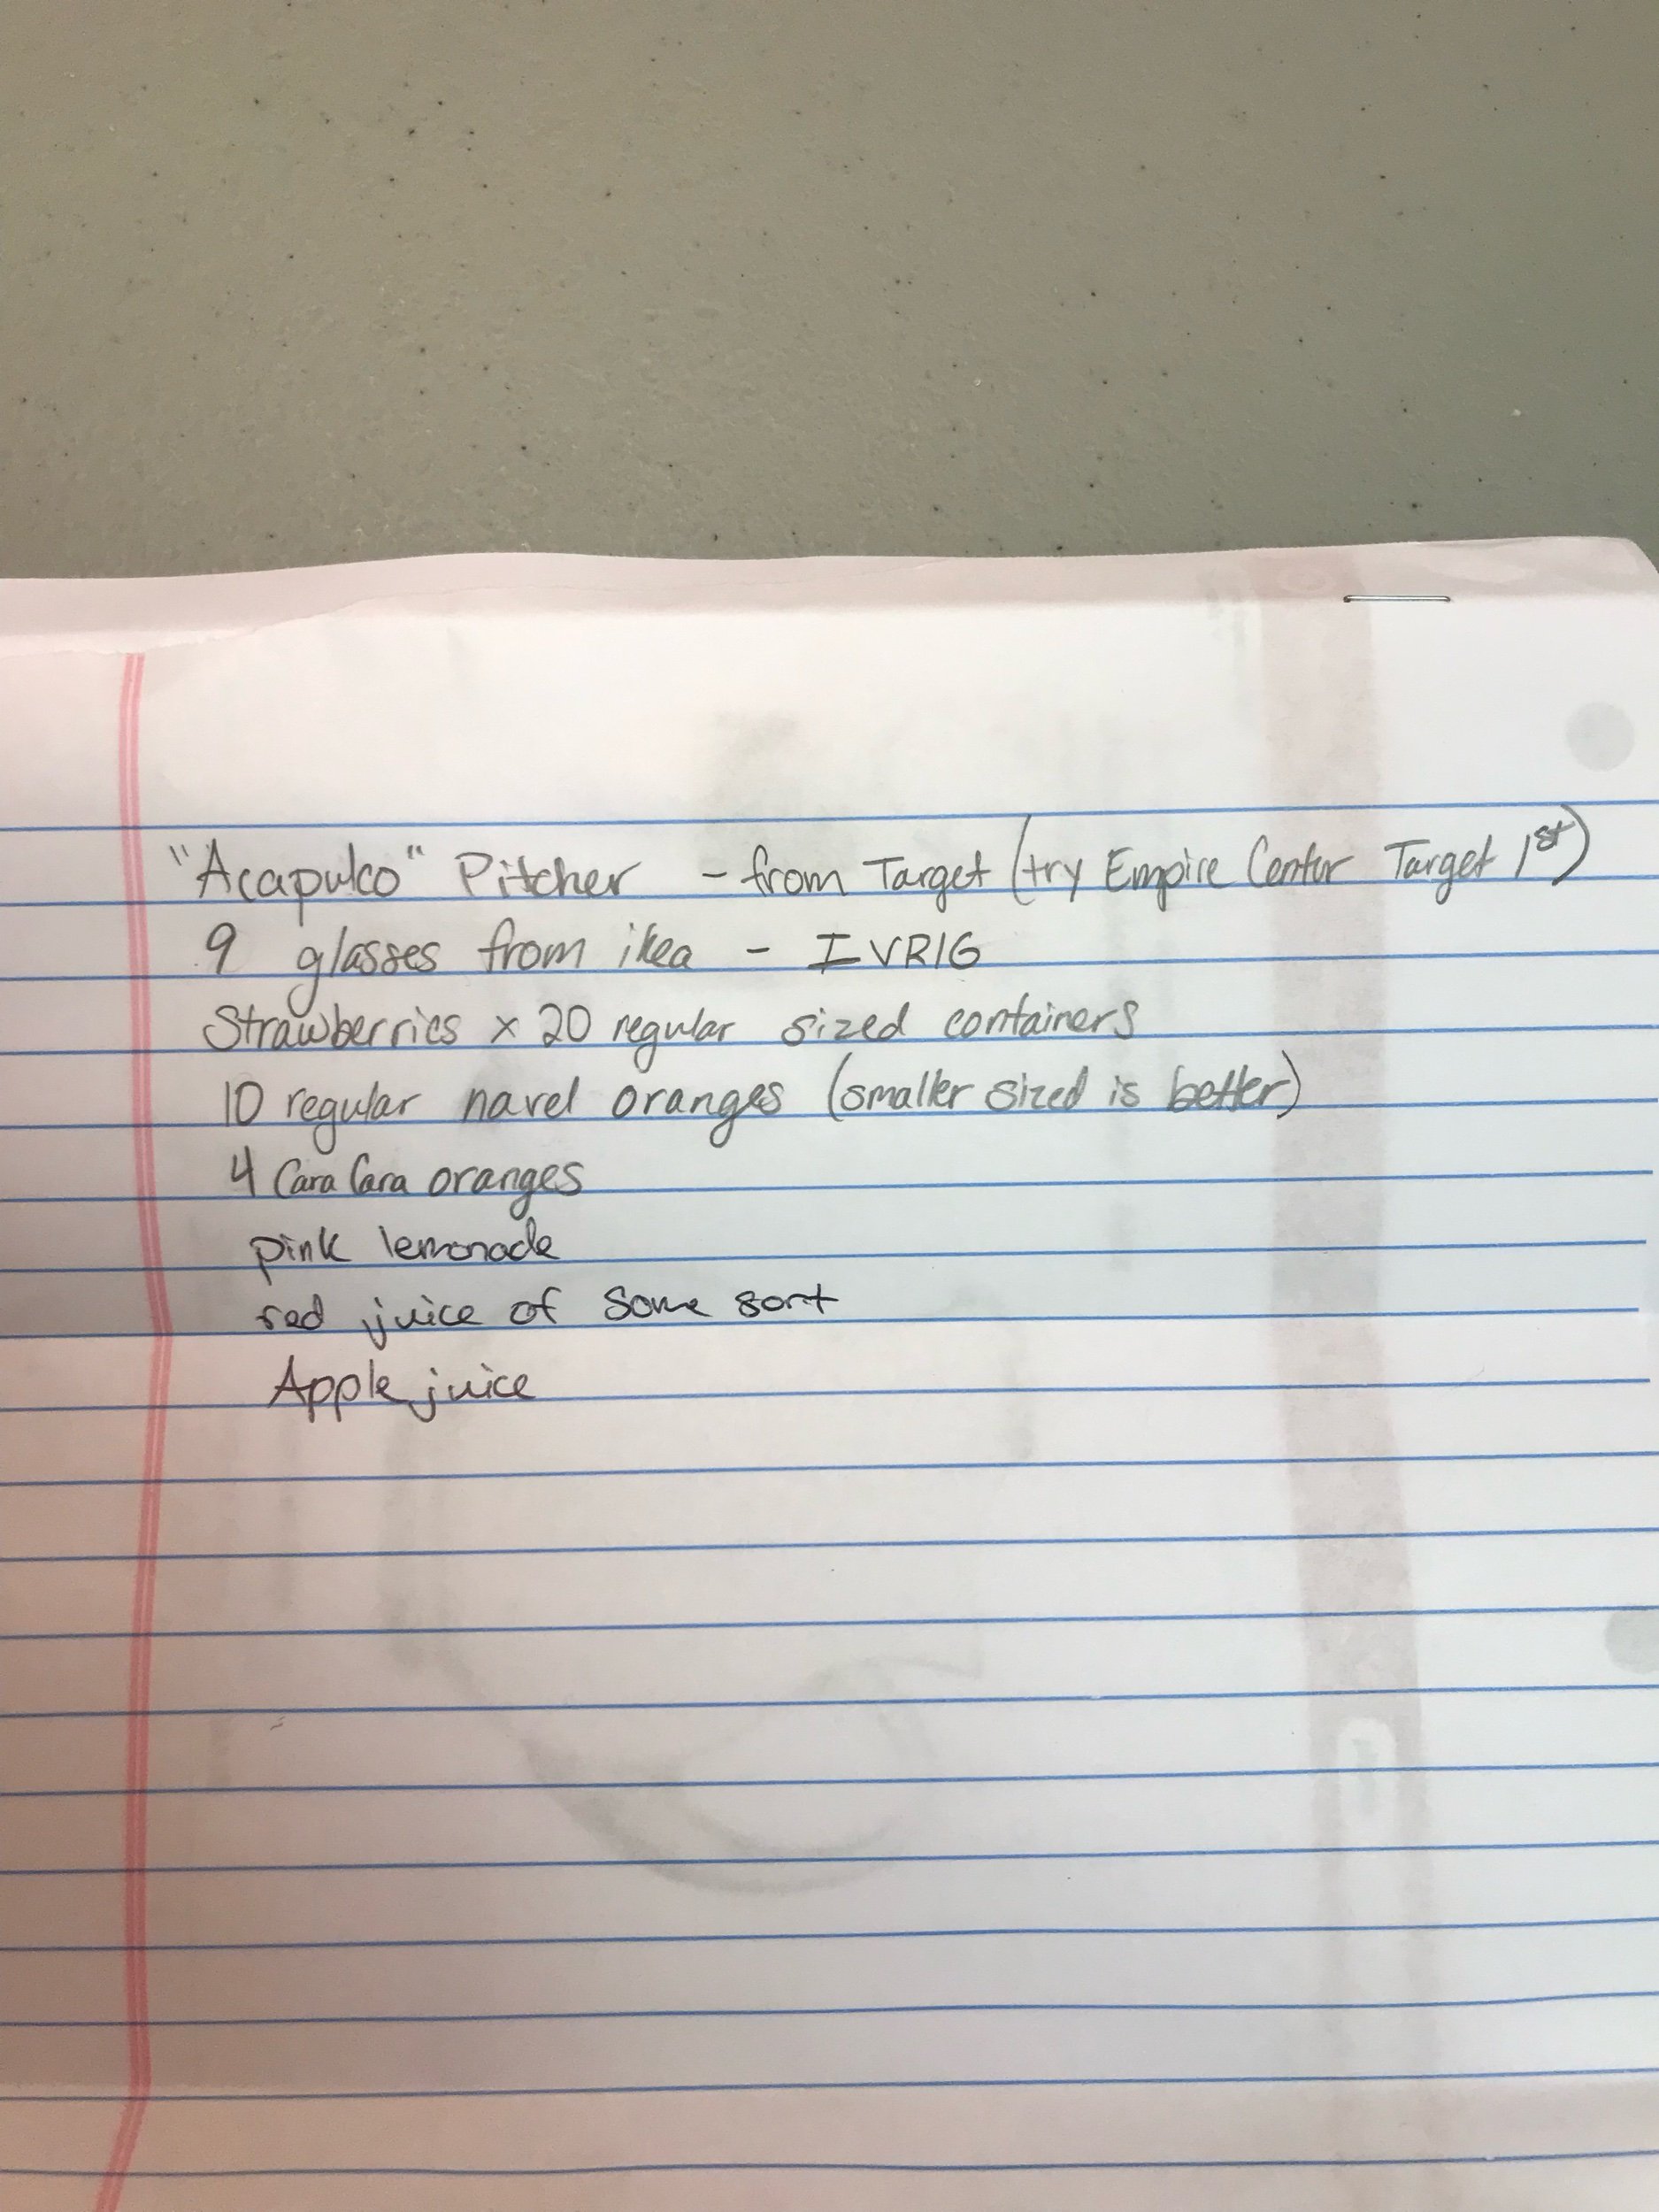 "Acapulco" Pitcher - from Target (try Empire Center Target 1st)
9 glasses from ikea - IVRIG
Strawberries x 20 regular sized containers
10 regular navel oranges (smaller sized is better)
4 Cara Cara oranges
pink lemonade
red juice of some sort
Apple juice